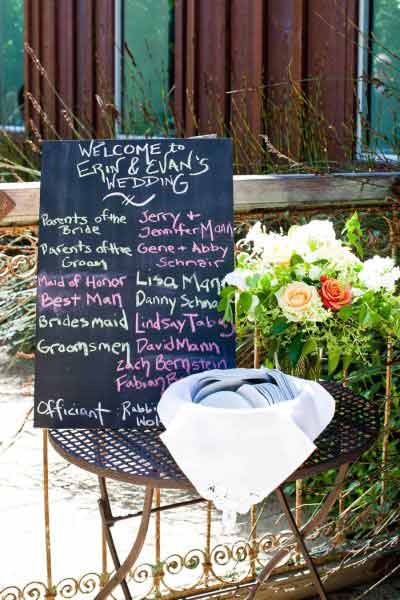 WELCOME to
ERIN & EVAN'S
WEDDING
Parents of the Bride Jerry + Jennifer Mann
Parents of the Groom Gene + Abby Schnair
Maid of Honor Lisa Mann
Best Man Danny
Bridesmaid Lindsay
Groomsmen David Mann
Zach Bernstein
Fabian
Officiant Rabbi